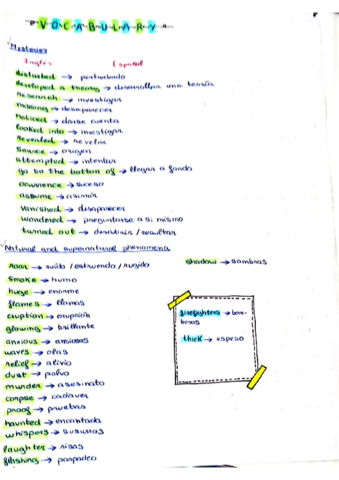 VOCABULARY
Mysteries
Inglés Español
disturbed → perturbado
developed a theory → desarrollar una teoría
research → investigar
missing → desaparecer
noticed → darse cuenta
looked into → investigar
revealed → revelar
source → origen
attempted → intentar
go to the bottom of → llegar a fondo
occurrence → suceso
assume → asumir
vanished → desaparecer
wondered → preguntarse a si mismo
turned out → descubrir / resultar
Natural and supernatural phenomena
roar → ruido / estruendo / rugido
shadow → sombras
smoke → humo
huge → enorme
flames → llamas
eruption → erupción
glowing → brillante
anxious → ansiosos
waves → olas
relief → alivio
dust → polvo
murder → asesinato
corpse → cadaver
proof → pruebas
haunted → encantada
whispers → susurros
laughter → risas
flashing → parpadeo
firefighters → bom-
beros
thick → espeso